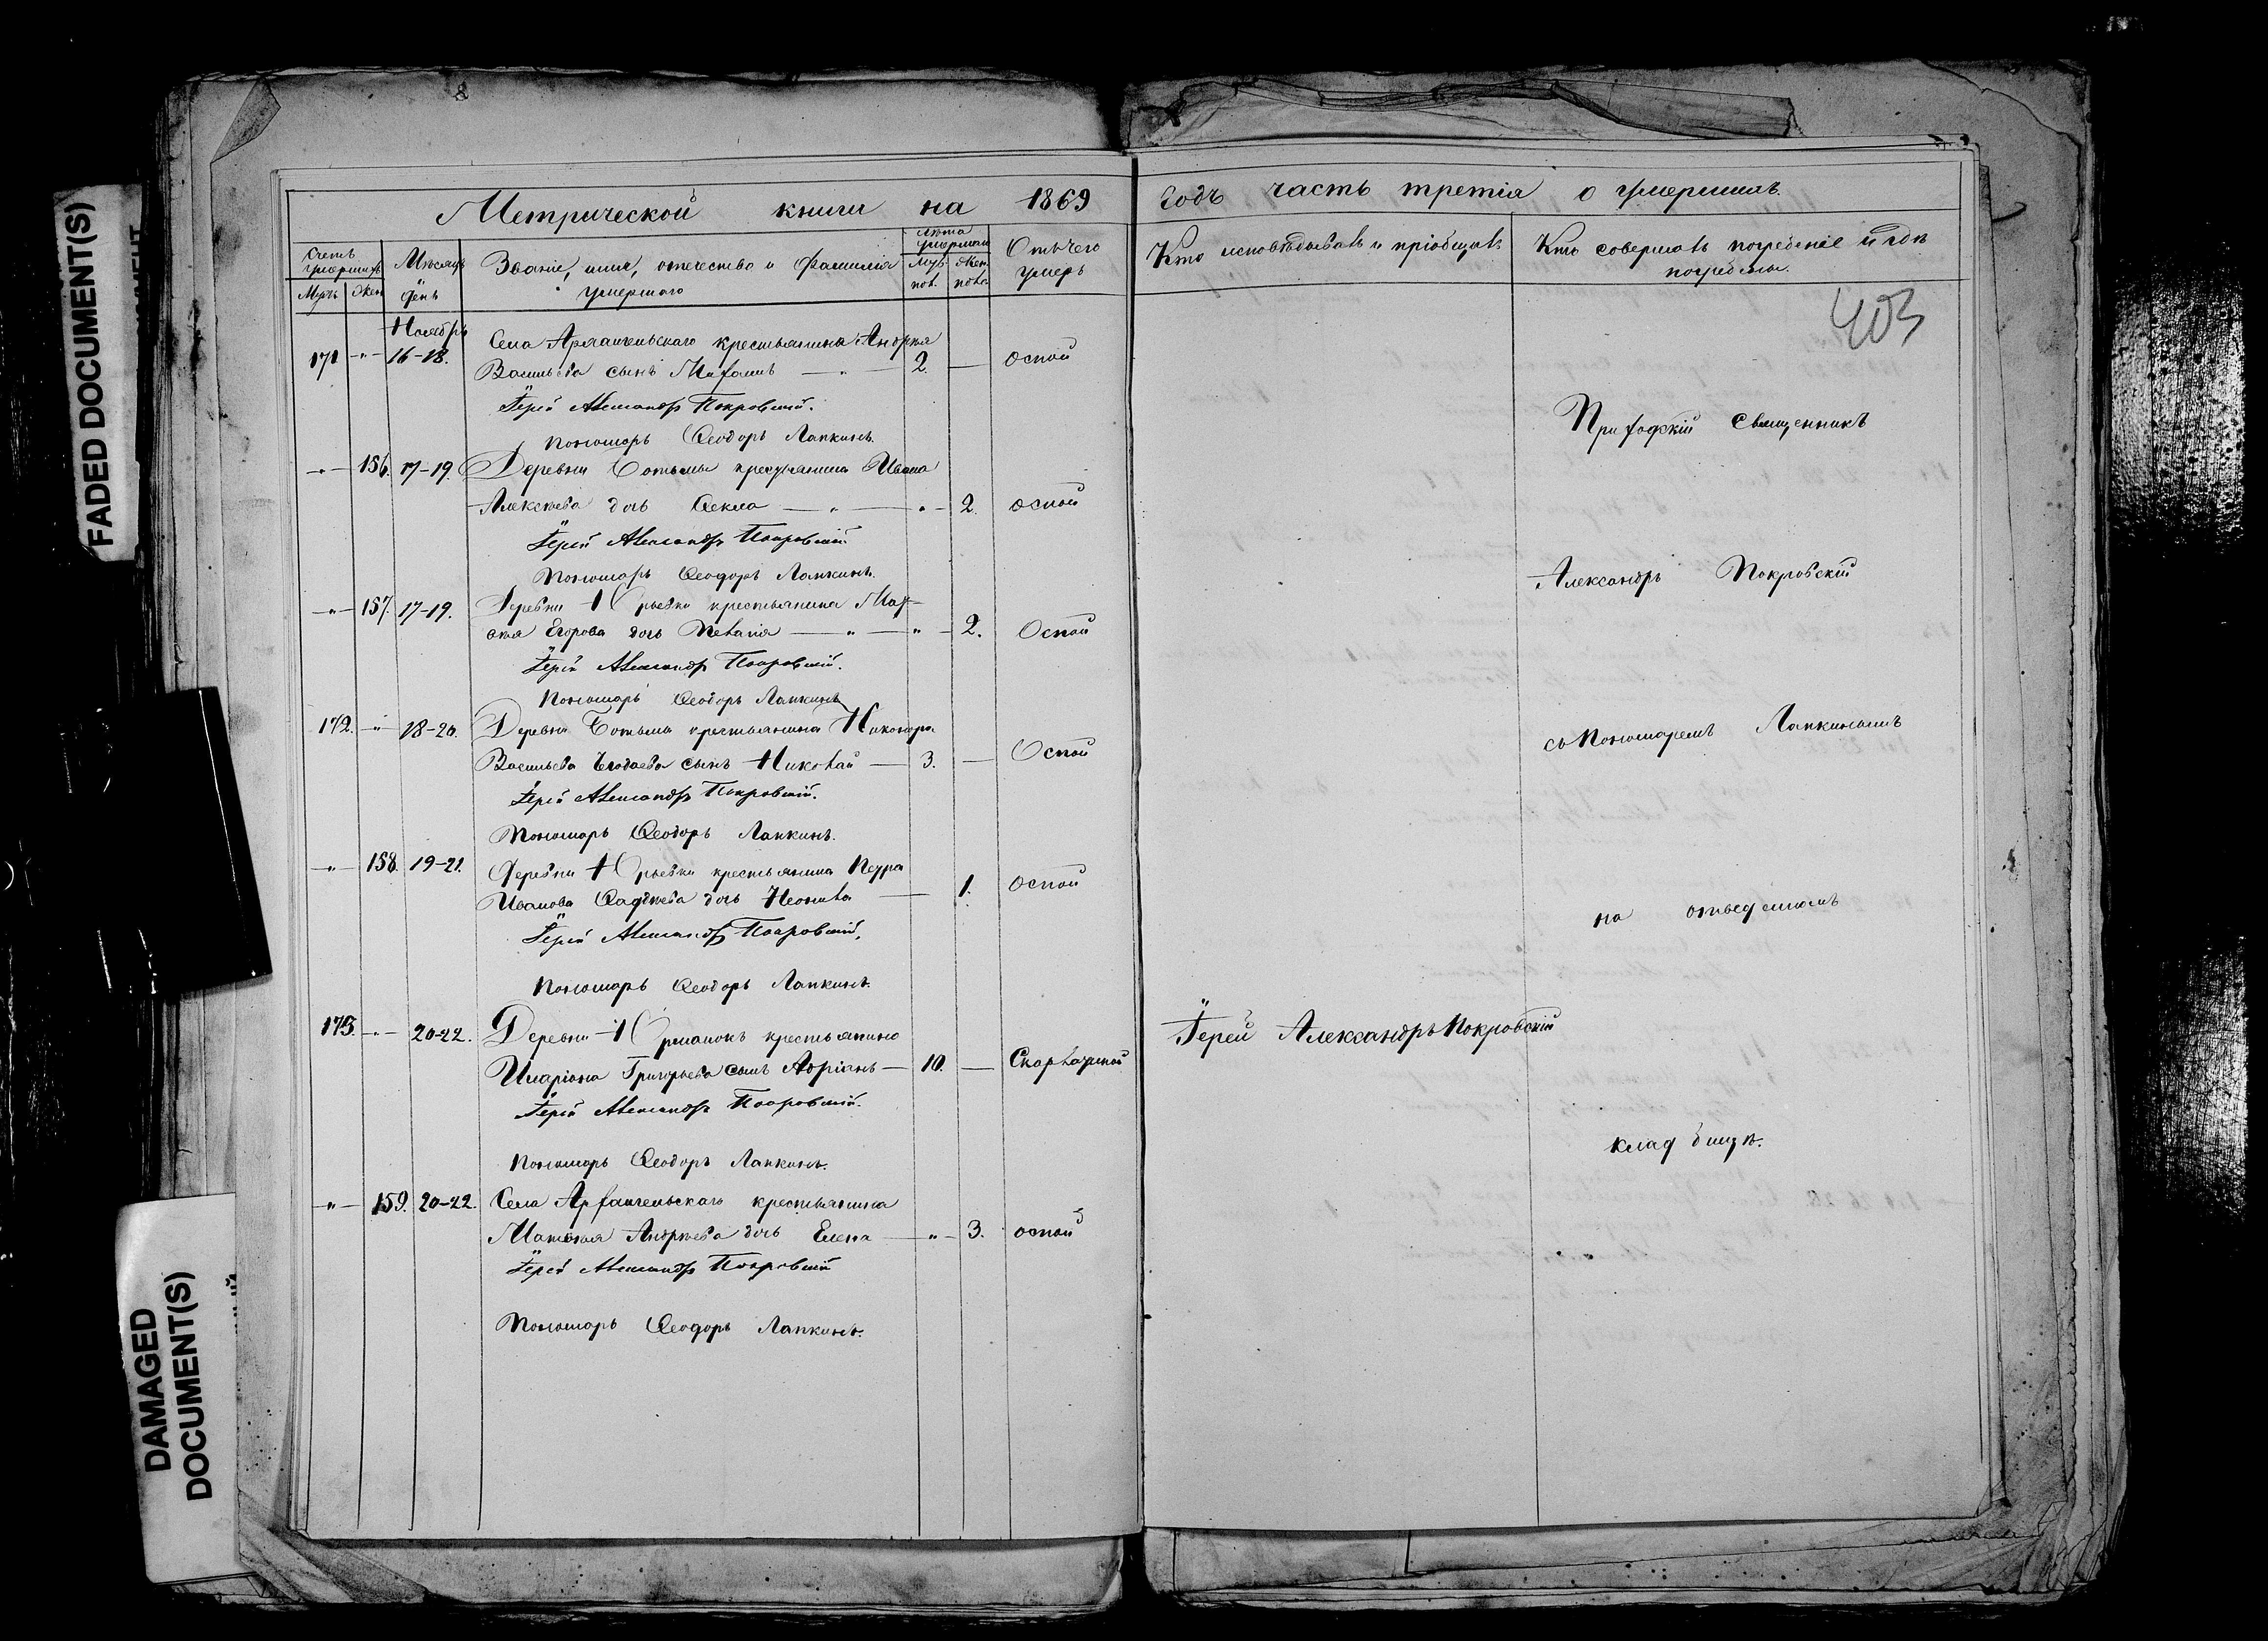 FADED DOCUMENT(S)
DAMAGED
DOCUMENT(S)
Метрической книги на 1869
Счетъ умершихъ
Муж. Жен.
Мѣсяцъ и день
Званіе, имя, отечество и фамилія
умершаго
Лѣта умершаго
Муж. пол. Жен. пола
Отъ чего
умеръ
Ноябрь
171 -"- 16-18. Села Архангельскаго крестьянина Андрея
Васильева сынъ Михаилъ -"- 2. — оспой
Іерей Александръ Покровскій.
Пономарь Ѳеодоръ Лапкинъ.
-"- 156. 17-19. Деревни Ботьмы крестьянина Ивана
Алексѣева дочь Ѳекла -"- " - 2. оспой
Іерей Александръ Покровскій
Пономарь Ѳеодоръ Лапкинъ.
-"- 157. 17-19. Деревни Юрьевки крестьянина
Егорова дочь Пелагія -"- " - 2. Оспой
Іерей Александръ Покровскій.
Пономарь Ѳеодоръ Лапкинъ
172. -"- 18-20. Деревни Ботьмы крестьянина Никонора
Васильева сынъ Николай — 3. — Оспой
Іерей Александръ Покровскій.
Пономарь Ѳеодоръ Лапкинъ.
-"- 158. 19-21. Деревни Юрьевки крестьянина Петра
Иванова Ѳаддѣева дочь Неонила — 1. оспой
Іерей Александръ Покровскій,
Пономарь Ѳеодоръ Лапкинъ.
173. -"- 20-22. Деревни Юрманокъ крестьянина
Иларіона Григорьева сынъ Адріанъ — 10. — Скарлатиной
Іерей Александръ Покровскій.
Пономарь Ѳеодоръ Лапкинъ.
-"- 159. 20-22. Села Архангельскаго крестьянина
Матвѣя Андреева дочь Елена — " - 3. оспой
Іерей Александръ Покровскій
Пономарь Ѳеодоръ Лапкинъ.
Годъ часть третія о умершихъ.
Кто исповѣдывалъ и пріобщалъ
Кто совершалъ погребеніе и гдѣ
погребены.
403
Приходскій Священникъ
Александръ Покровскій
съ Пономаремъ Лапкинымъ
на отведенномъ
Іерей Александръ Покровскій
кладбищѣ.